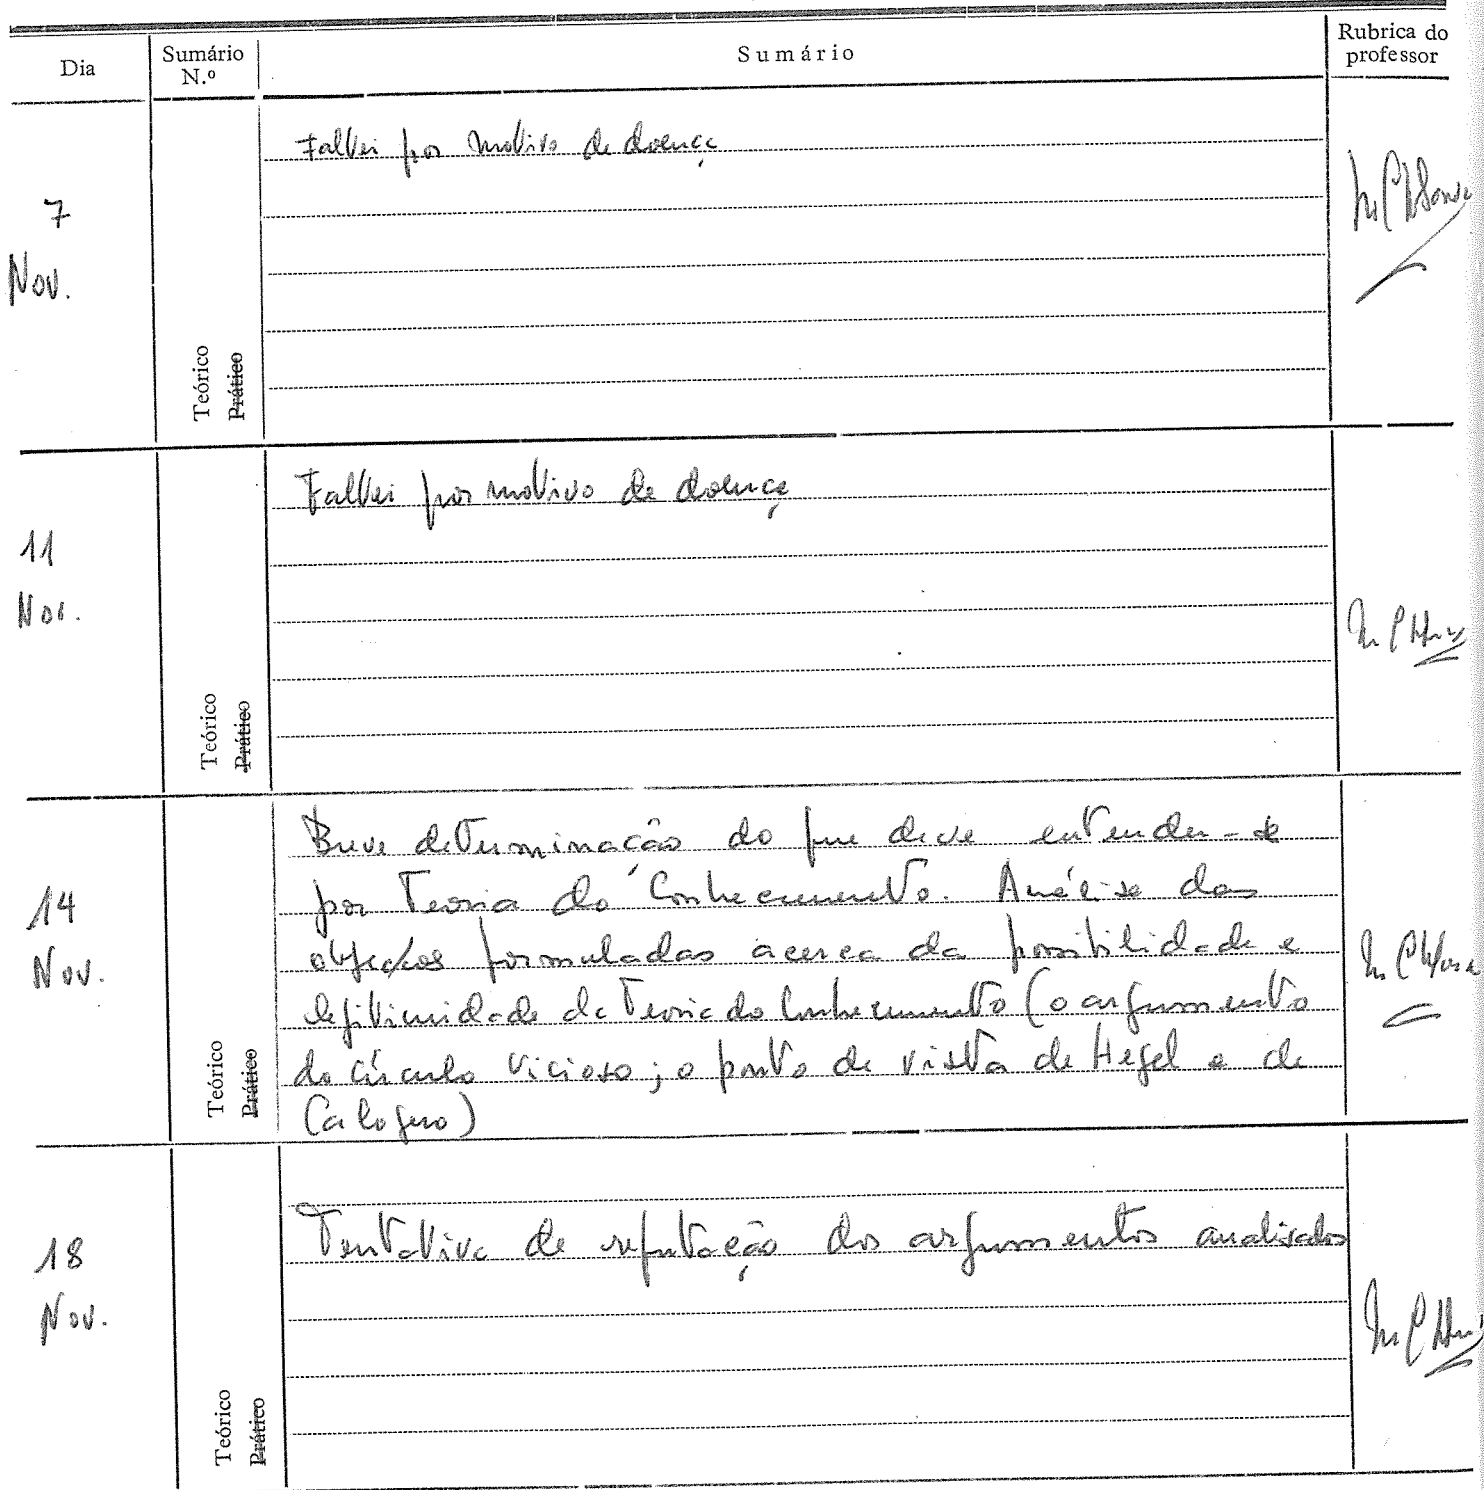 Dia
Sumário N.º
Sumário
Rubrica do professor
7 Nov.
Teórico
Prático
Faltei por motivo de doença
11 Nov.
Teórico
Prático
Faltei por motivo de doença
14 Nov.
Teórico
Prático
Breve determinação do que deve entender-se
por Teoria do Conhecimento. Análise das
objecções formuladas acerca da possibilidade e
legitimidade da Teoria do Conhecimento (o argumento
do círculo vicioso; o ponto de vista de Hegel e de
Calogero)
18 Nov.
Teórico
Prático
Tentativa de refutação dos argumentos analisados